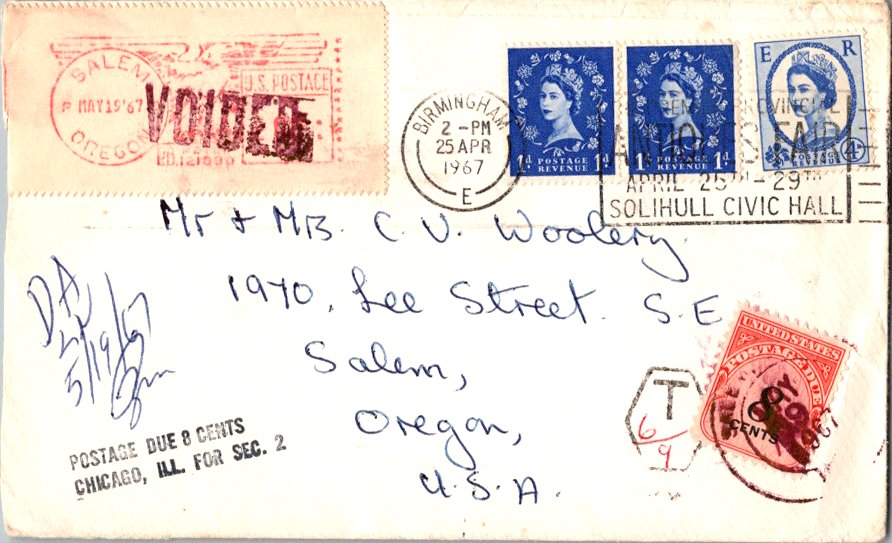 SALEM
OREGON
P MAY 19 '67
U.S. POSTAGE
VOIDED
BIRMINGHAM
2 - PM
25 APR
1967
E
1d POSTAGE 1d
REVENUE
1d POSTAGE 1d
REVENUE
E R
POSTAGE
REVENUE
4d
ANTIQUES FAIR
APRIL 25TH - 29TH
SOLIHULL CIVIC HALL
Mr & Mrs. C. V. Woolery.
1970, Lee Street. S.E
Salem,
Oregon,
U.S.A.
5/19/67
POSTAGE DUE 8 CENTS
CHICAGO, ILL. FOR SEC. 2
T
6/9
UNITED STATES
POSTAGE DUE
8
CENTS
MAY
19
1967